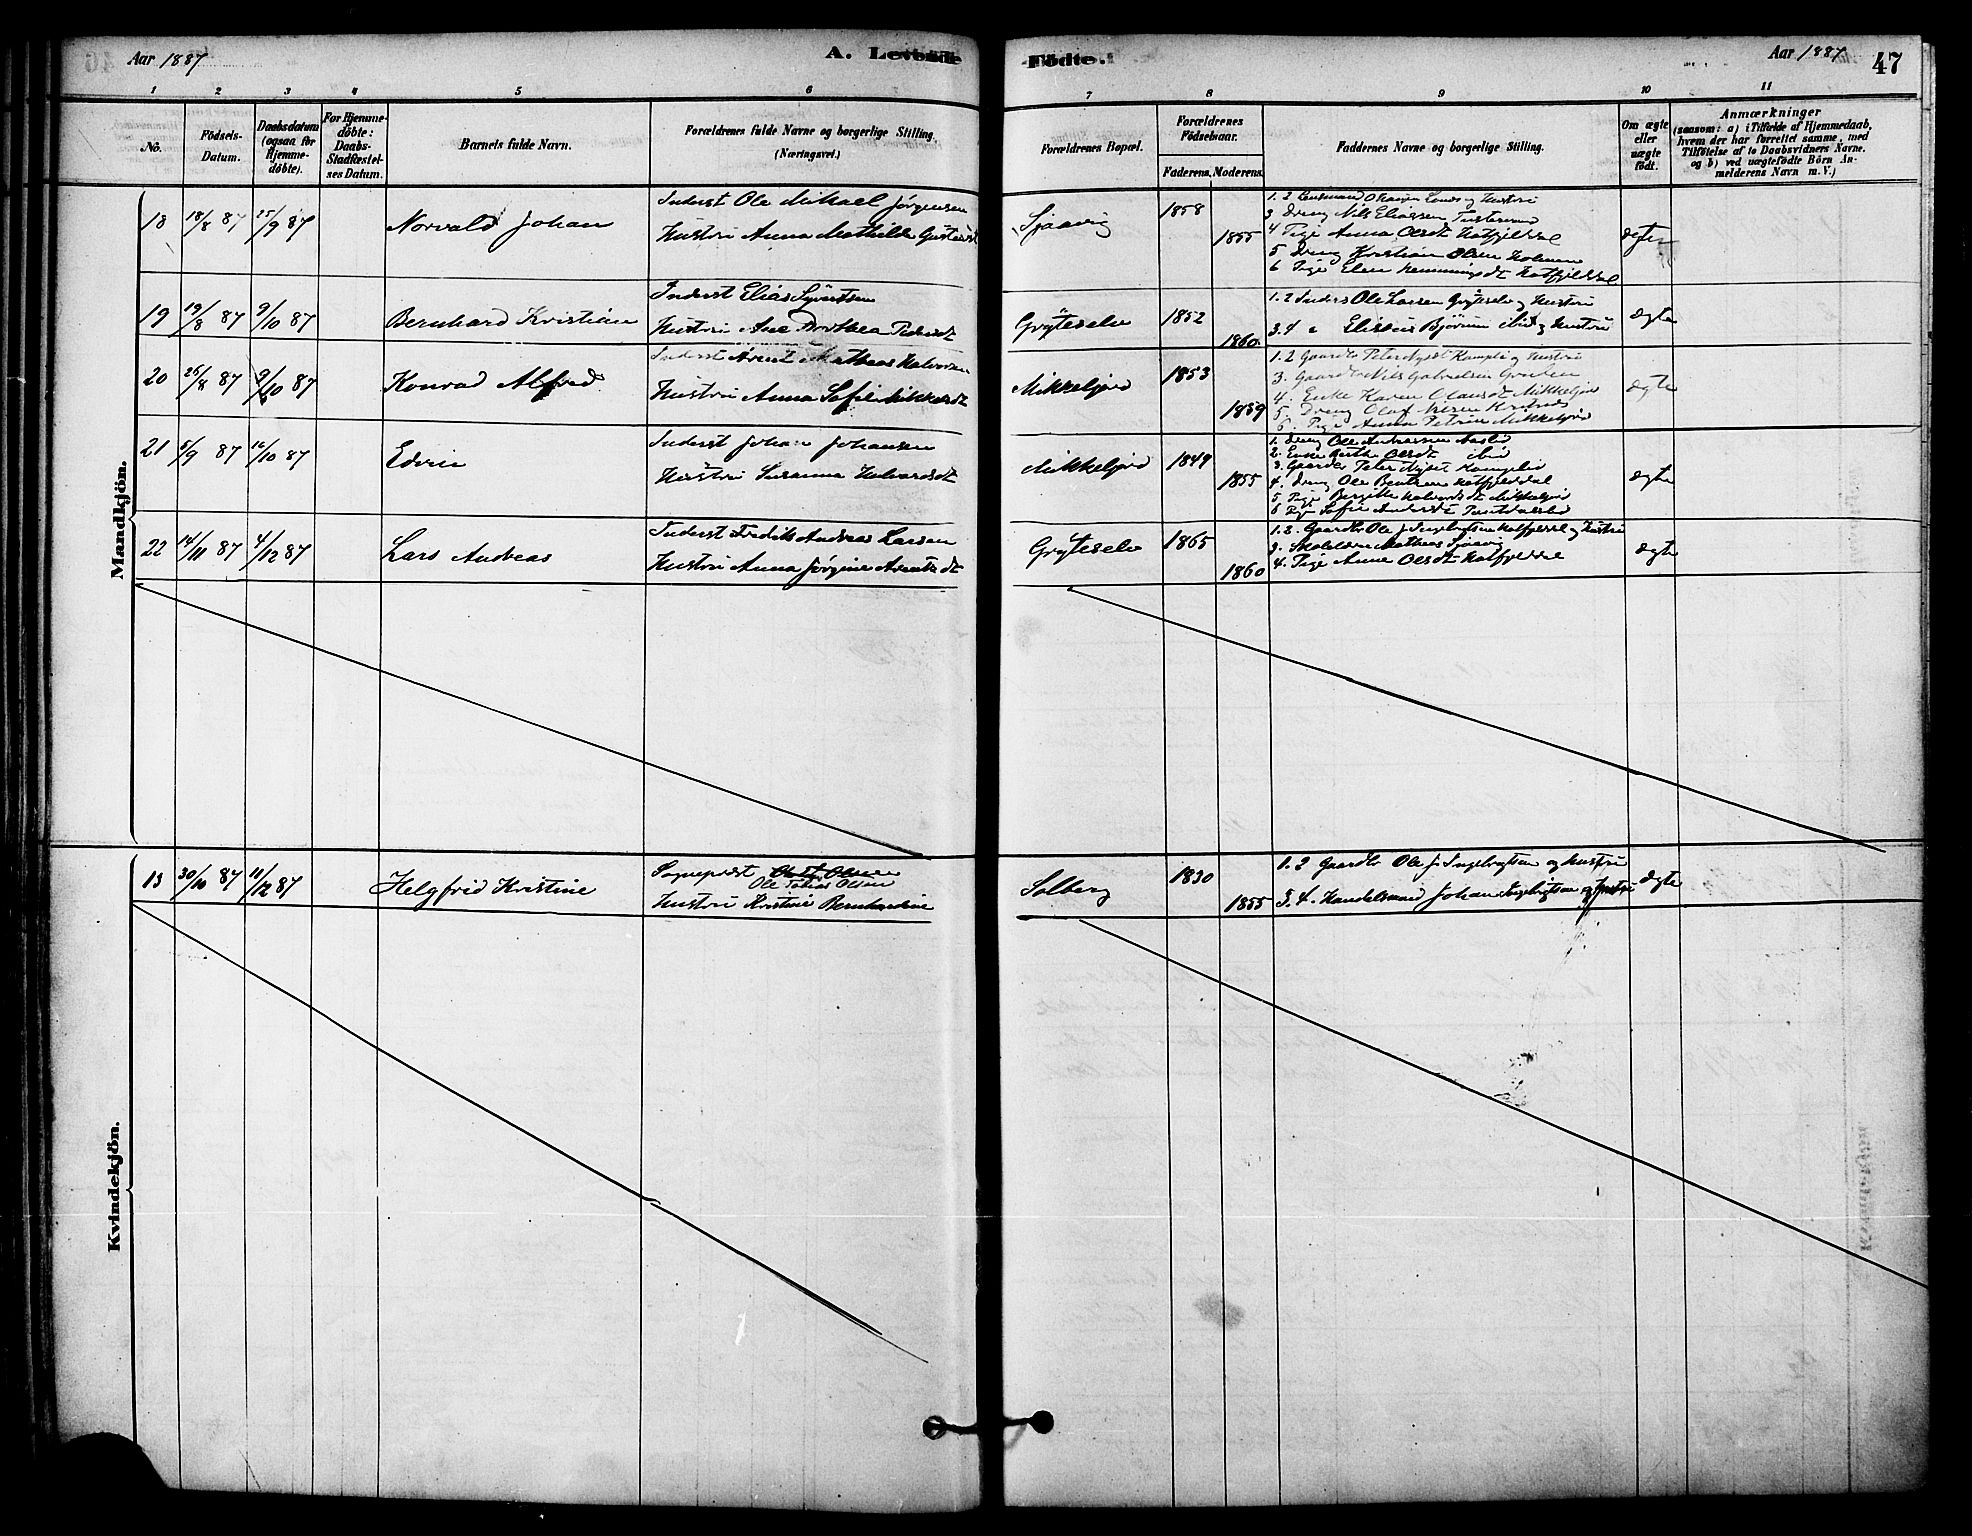 Aar 1887
A. Levende
Födte.
Aar 1887
47
1 2 3 4 5 6
7 8 9 10 11
No.
Födsels-
Datum.
Daabsdatum
(ogsaa for
Hjemme-
döbte).
For Hjemme-
döbte:
Daabs-
Stadfæstel-
ses Datum.
Barnets fulde Navn.
Forældrenes fulde Navne og borgerlige Stilling.
(Næringsvei.)
Forældrenes Bopæl.
Forældrenes
Födselsaar.
Faderens. Moderens.
Faddernes Navne og borgerlige Stilling.
Om ægte
eller
uægte
födt.
Anmærkninger
(saasom: a) i Tilfælde af Hjemmedaab,
hvem der har forrettet samme, med
Tilföielse af to Daabsvidners Navne.
og b) ved uægtefödte Börn An-
melderens Navn m. V.)
Mandkjön.
18 18/8 87 25/9 87 Norvald Johan
Inderst Ole Mikael Jørgensen
Hustru Anna Mathilde
1858
1855
3 Dreng Nils Eliassen
4 Pige Anna Olsdt Hatfjeldal
5 Dreng Kristian Olsen Holmen
6 Pige Elen Hemmingsdt Hatfjeldal
19 19/8 87 9/10 87 Bernhard Kristian
Inderst Elias Syvertsen
Hustru Ane Dorthea Pedersdt
Gryteselv 1852
1860
1. 2 Inders Ole Larsen Gryteselv og Hustru
3. 4 " Eliseus Bjørnum ibid og Hustru
ægte
20 26/8 87 9/10 87 Konrad Alfred
Inderst Arent Mathias Halvorsen
Hustru Anna Sofie Mikkelsdt
Mikkeljord 1853
1859
3. Gaardbr Nils Gabrielsen Gruben
4. Enke Karen Olausdt Mikkeljord
6. Pige Anna Petrine Mikkeljord
ægte
21 5/9 87 16/10 87 Edvin
Inderst Johan Johansen
Hustru Susanna Halvorsdt
Mikkeljord 1849
1855
1. Dreng Ole Andreassen
2. Enke Olsdt ibid
4. Dreng Ole Bentsen Hatfjelddal
ægte
22 14/11 87 4/12 87 Lars Andreas
Inderst Fredrik Andreas Larsen
Hustru Anna Jørgine Arentsdt
Gryteselv 1865
1860
1. 2. Gaardbr Ole J. Ingebrigtsen Hatfjeldal og Hustru
4. Pige Anne Olsdt Hatfjeldal
ægte
Kvindekjön.
13 30/10 87 11/12 87 Helgfrid Kristine
Sognepræst
Ole Tobias Olsen
Hustru Kristine Bernhardine
Solberg 1830
1855
1. 2 Gaardbr Ole J. Ingebrigtsen og Hustru
3. 4. Handelsmand Johan Ingebrigtsen og Hustru
ægte